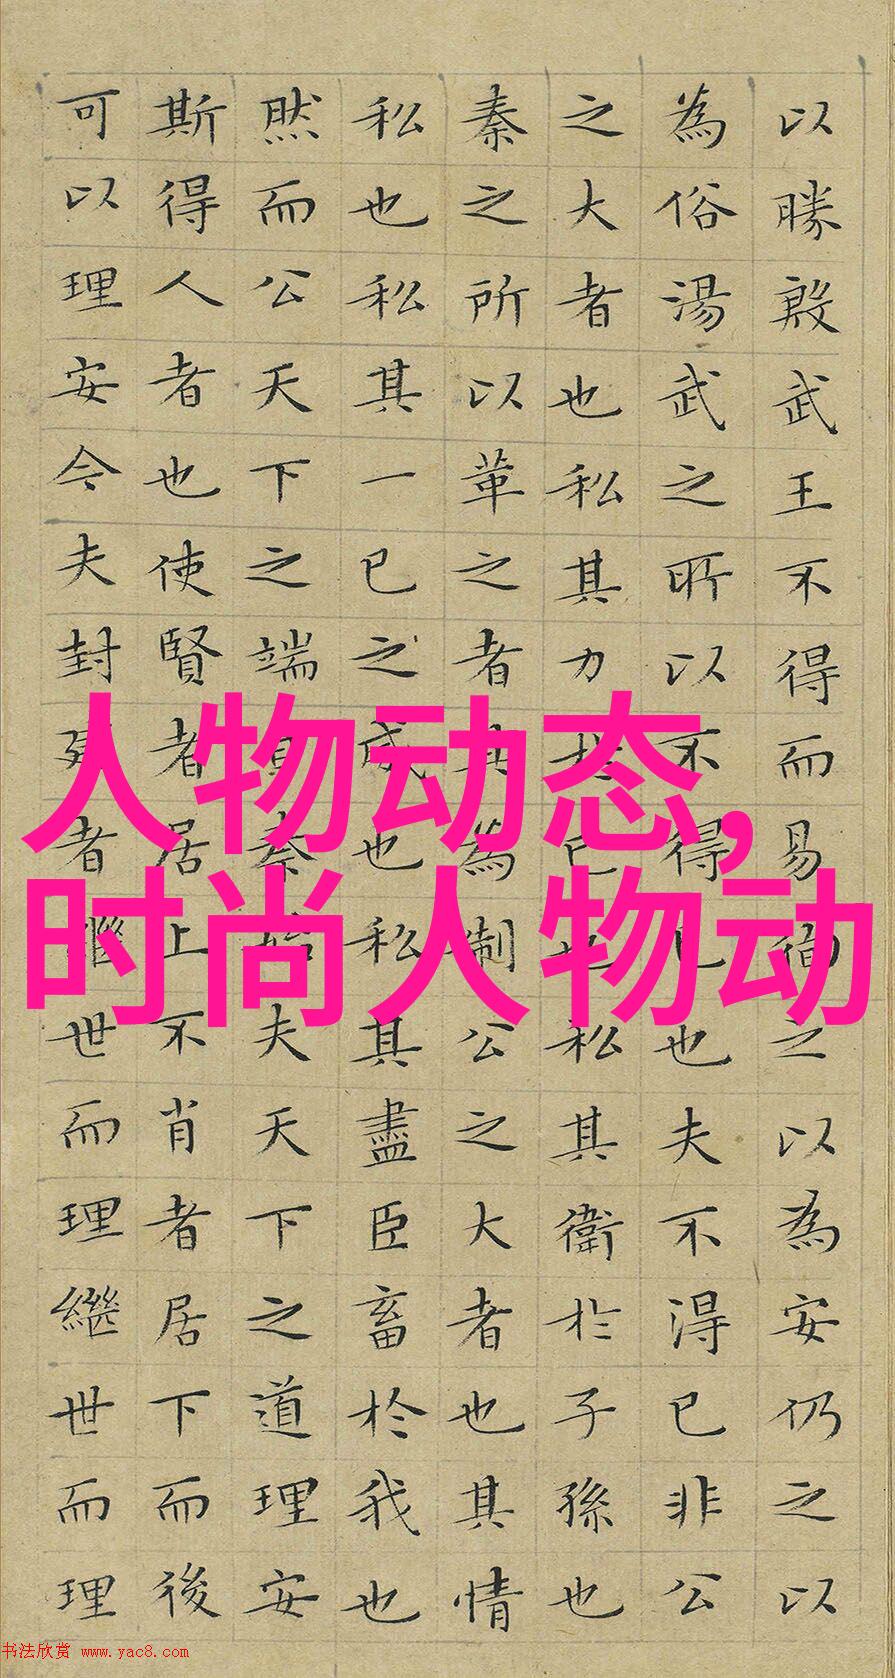 以勝殷武王不得而易徇之以為安仍之以
為俗湯武之所以不得已也夫不得已非公
之大者也私其力於己也私其衛於子孫也
秦之所以革之者其為制公之大者也其情
私也私其一己之威也私其盡臣畜於我也
然而公天下之端自秦始夫天下之道理安
斯得人者也使賢者居上不肖者居下而後
可以理安今夫封建者繼世而理繼世而理
人物动态,
时尚人物动
书法欣赏 www.yac8.com